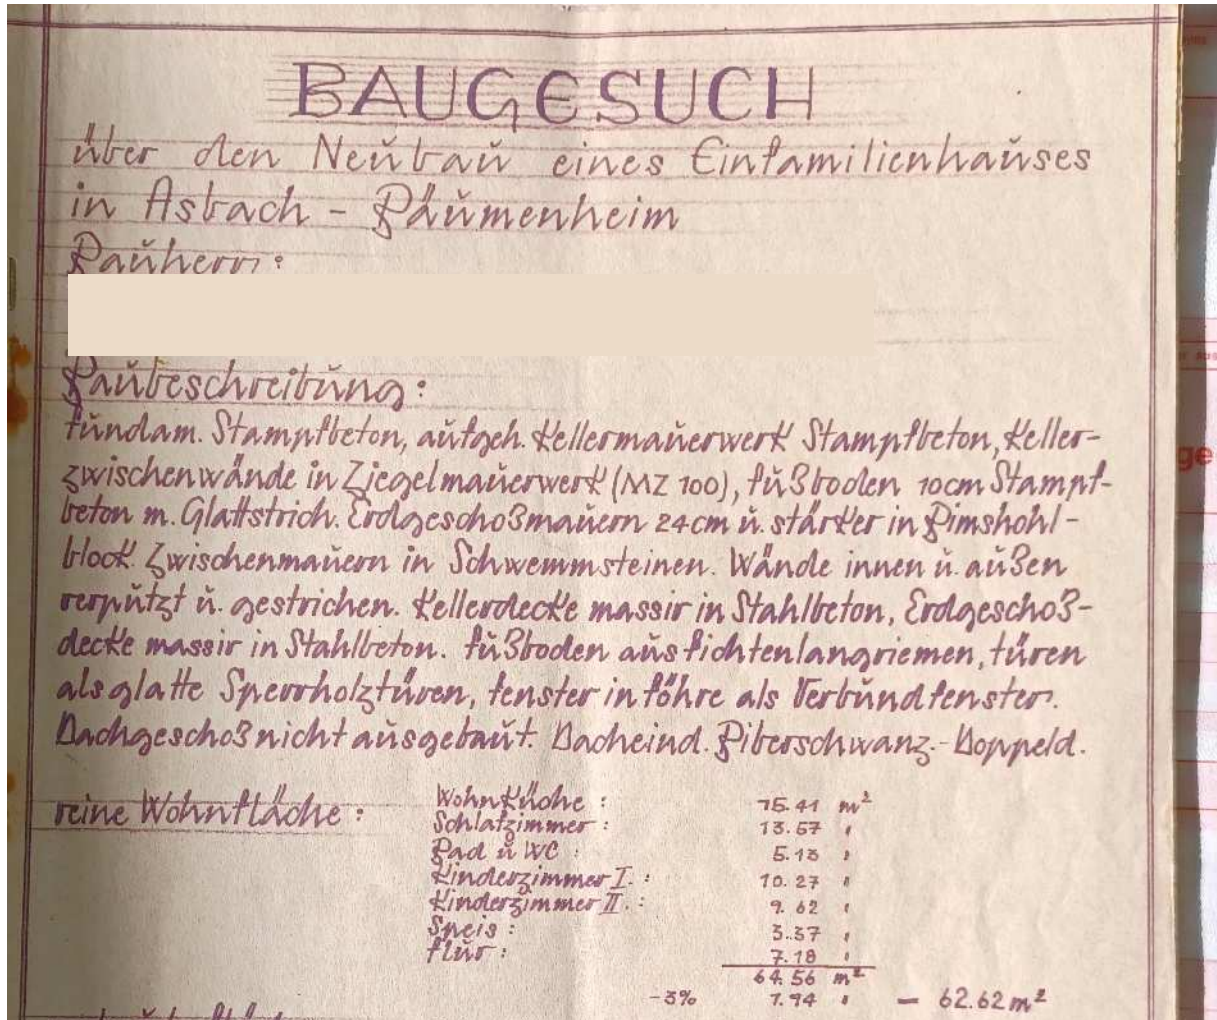 BAUGESUCH
über den Neubau eines Einfamilienhauses
in Asbach - Bäumenheim
Bauherr:
Baubeschreibung:
Fundam. Stampfbeton, aufgeh. Kellermauerwerk Stampfbeton, Keller-
zwischenwände in Ziegelmauerwerk (MZ 100), Fußboden 10cm Stampf-
beton m. Glattstrich. Erdgeschoßmauern 24cm u. stärker in Bimshohl-
block. Zwischenmauern in Schwemmsteinen. Wände innen u. außen
verputzt u. gestrichen. Kellerdecke massiv in Stahlbeton, Erdgeschoß-
decke massiv in Stahlbeton. Fußboden aus Fichtenlangriemen, Türen
als glatte Sperrholztüren, Fenster in Föhre als Verbundfenster.
Dachgeschoß nicht ausgebaut. Dacheind. Biberschwanz-Doppeld.
reine Wohnfläche: Wohnküche: 15.41 m²
Schlafzimmer: 13.57 "
Bad u WC: 5.13 "
Kinderzimmer I.: 10.27 "
Kinderzimmer II.: 9.62 "
Speis: 3.37 "
Flur: 7.18 "
64.56 m²
-3% 1.94 " — 62.62 m²